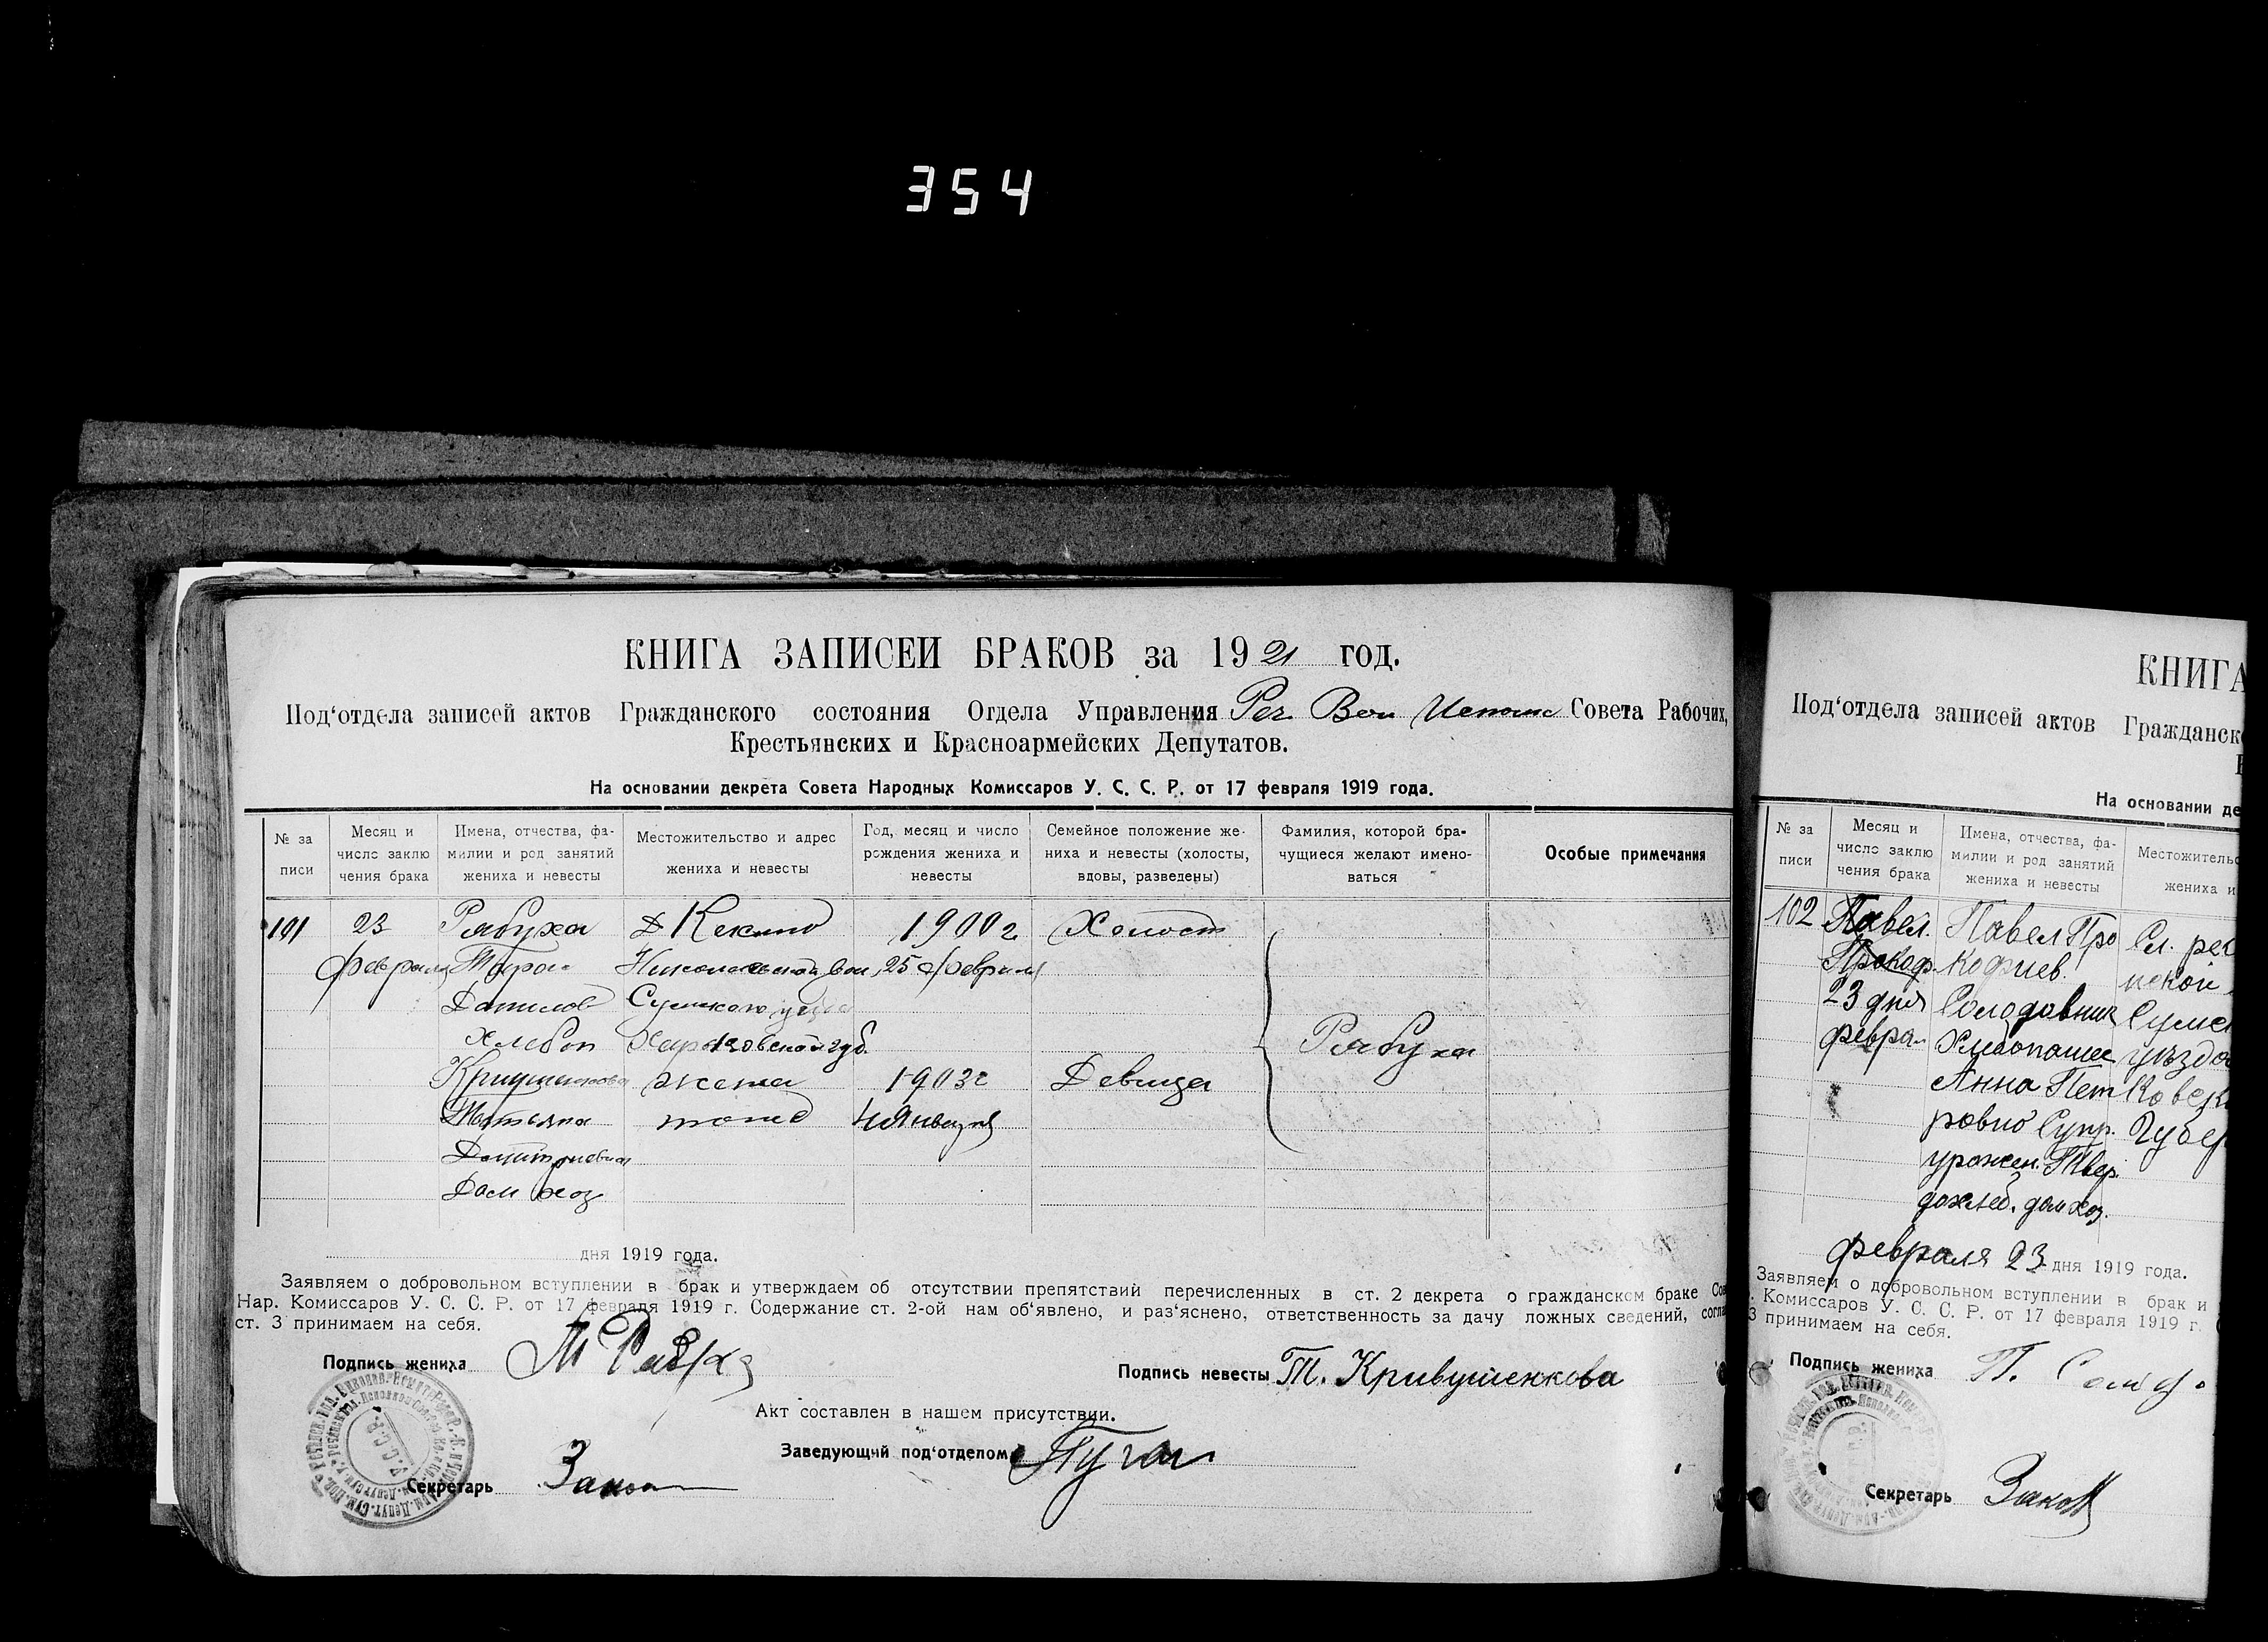 354
КНИГА ЗАПИСЕЙ БРАКОВ за 1921 год.
Под‘отдела записей актов Гражданского состояния Отдела Управления Реч Вол Исполк Совета Рабочих,
Крестьянских и Красноармейских Депутатов.
На основании декрета Совета Народных Комиссаров У. С. С. Р. от 17 февраля 1919 года.
№ за писи
Месяц и число заклю чения брака
Имена, отчества, фа- милии и род занятий жениха и невесты
Местожительство и адрес жениха и невесты
Год, месяц и число рождения жениха и невесты
Семейное положение же- ниха и невесты (холосты, вдовы, разведены)
Фамилия, которой бра- чущиеся желают имено- ваться
Особые примечания
101 23 Рябуха д Кекино 1900 г Холост
февраля Тарас Николаевской вол 25 февраля
Данилов Сумского уезда
Хлебоп Харьковской губ. Рябуха
Кривушенкова жена 1903 г Девица
Татьяна тоже 4 января
Дмитриевна
Дом хоз
дня 1919 года.
Заявляем о добровольном вступлении в брак и утверждаем об отсутствии препятствий перечисленных в ст. 2 декрета о гражданском браке Сов
Нар. Комиссаров У. С. С. Р. от 17 февраля 1919 г. Содержание ст. 2-ой нам об‘явлено, и раз‘яснено, ответственность за дачу ложных сведений, согла
ст. 3 принимаем на себя.
Подпись жениха
Подпись невесты Т. Кривушенкова
Акт составлен в нашем присутствии.
Заведующий под‘отделом
Секретарь
У.С.С.Р.
КНИГА
Под‘отдела записей актов Гражданск
На основании де
№ за писи
Месяц и число заклю чения брака
Имена, отчества, фа- милии и род занятий жениха и невесты
Местожительс
жениха и
102 Павел. Павел Про Сл. реч
Прокоф. кофиев. нской
23 дня Солодовник Сумс
февра- Хлебопашец уезда
Анна Пет
ровна Супр. Губер
урожен. Твер.
дохлеб. дом хоз.
февраля 23 дня 1919 года.
Заявляем о добровольном вступлении в брак и
. Комиссаров У. С. С. Р. от 17 февраля 1919 г.
3 принимаем на себя.
Подпись жениха
Секретарь